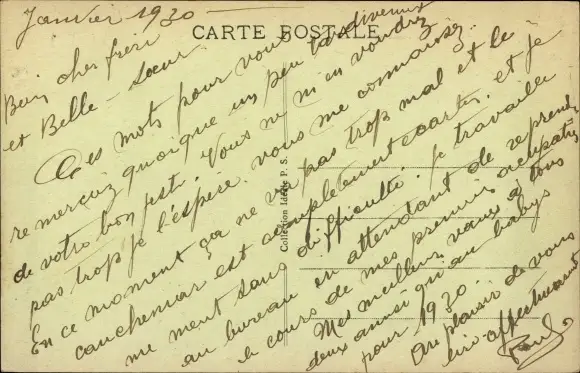 Janvier 1930
CARTE POSTALE
Bien cher frère
et Belle-Sœur
Ces mots pour vous
remerciez quoique un peu tardivement
de votre bon geste. Vous ne m'en voudrez
pas trop je l'espère. vous me connaissez.
En ce moment ça ne va pas trop mal et le
cauchemar est complètement écarté. et je
me ment sans difficulté. je travaille
au bureau en attendant de reprend
le cours de mes premières occupatis
Mes meilleurs vœux à tous
deux ainsi qu'au babys
pour 1930.
Au plaisir de vous
lire affectueusement
Paul
Collection Idéale P. S.